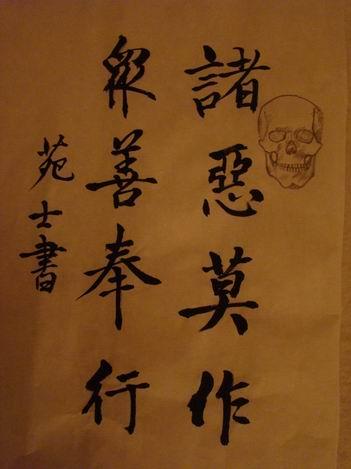 諸惡莫作
眾善奉行
苑士書